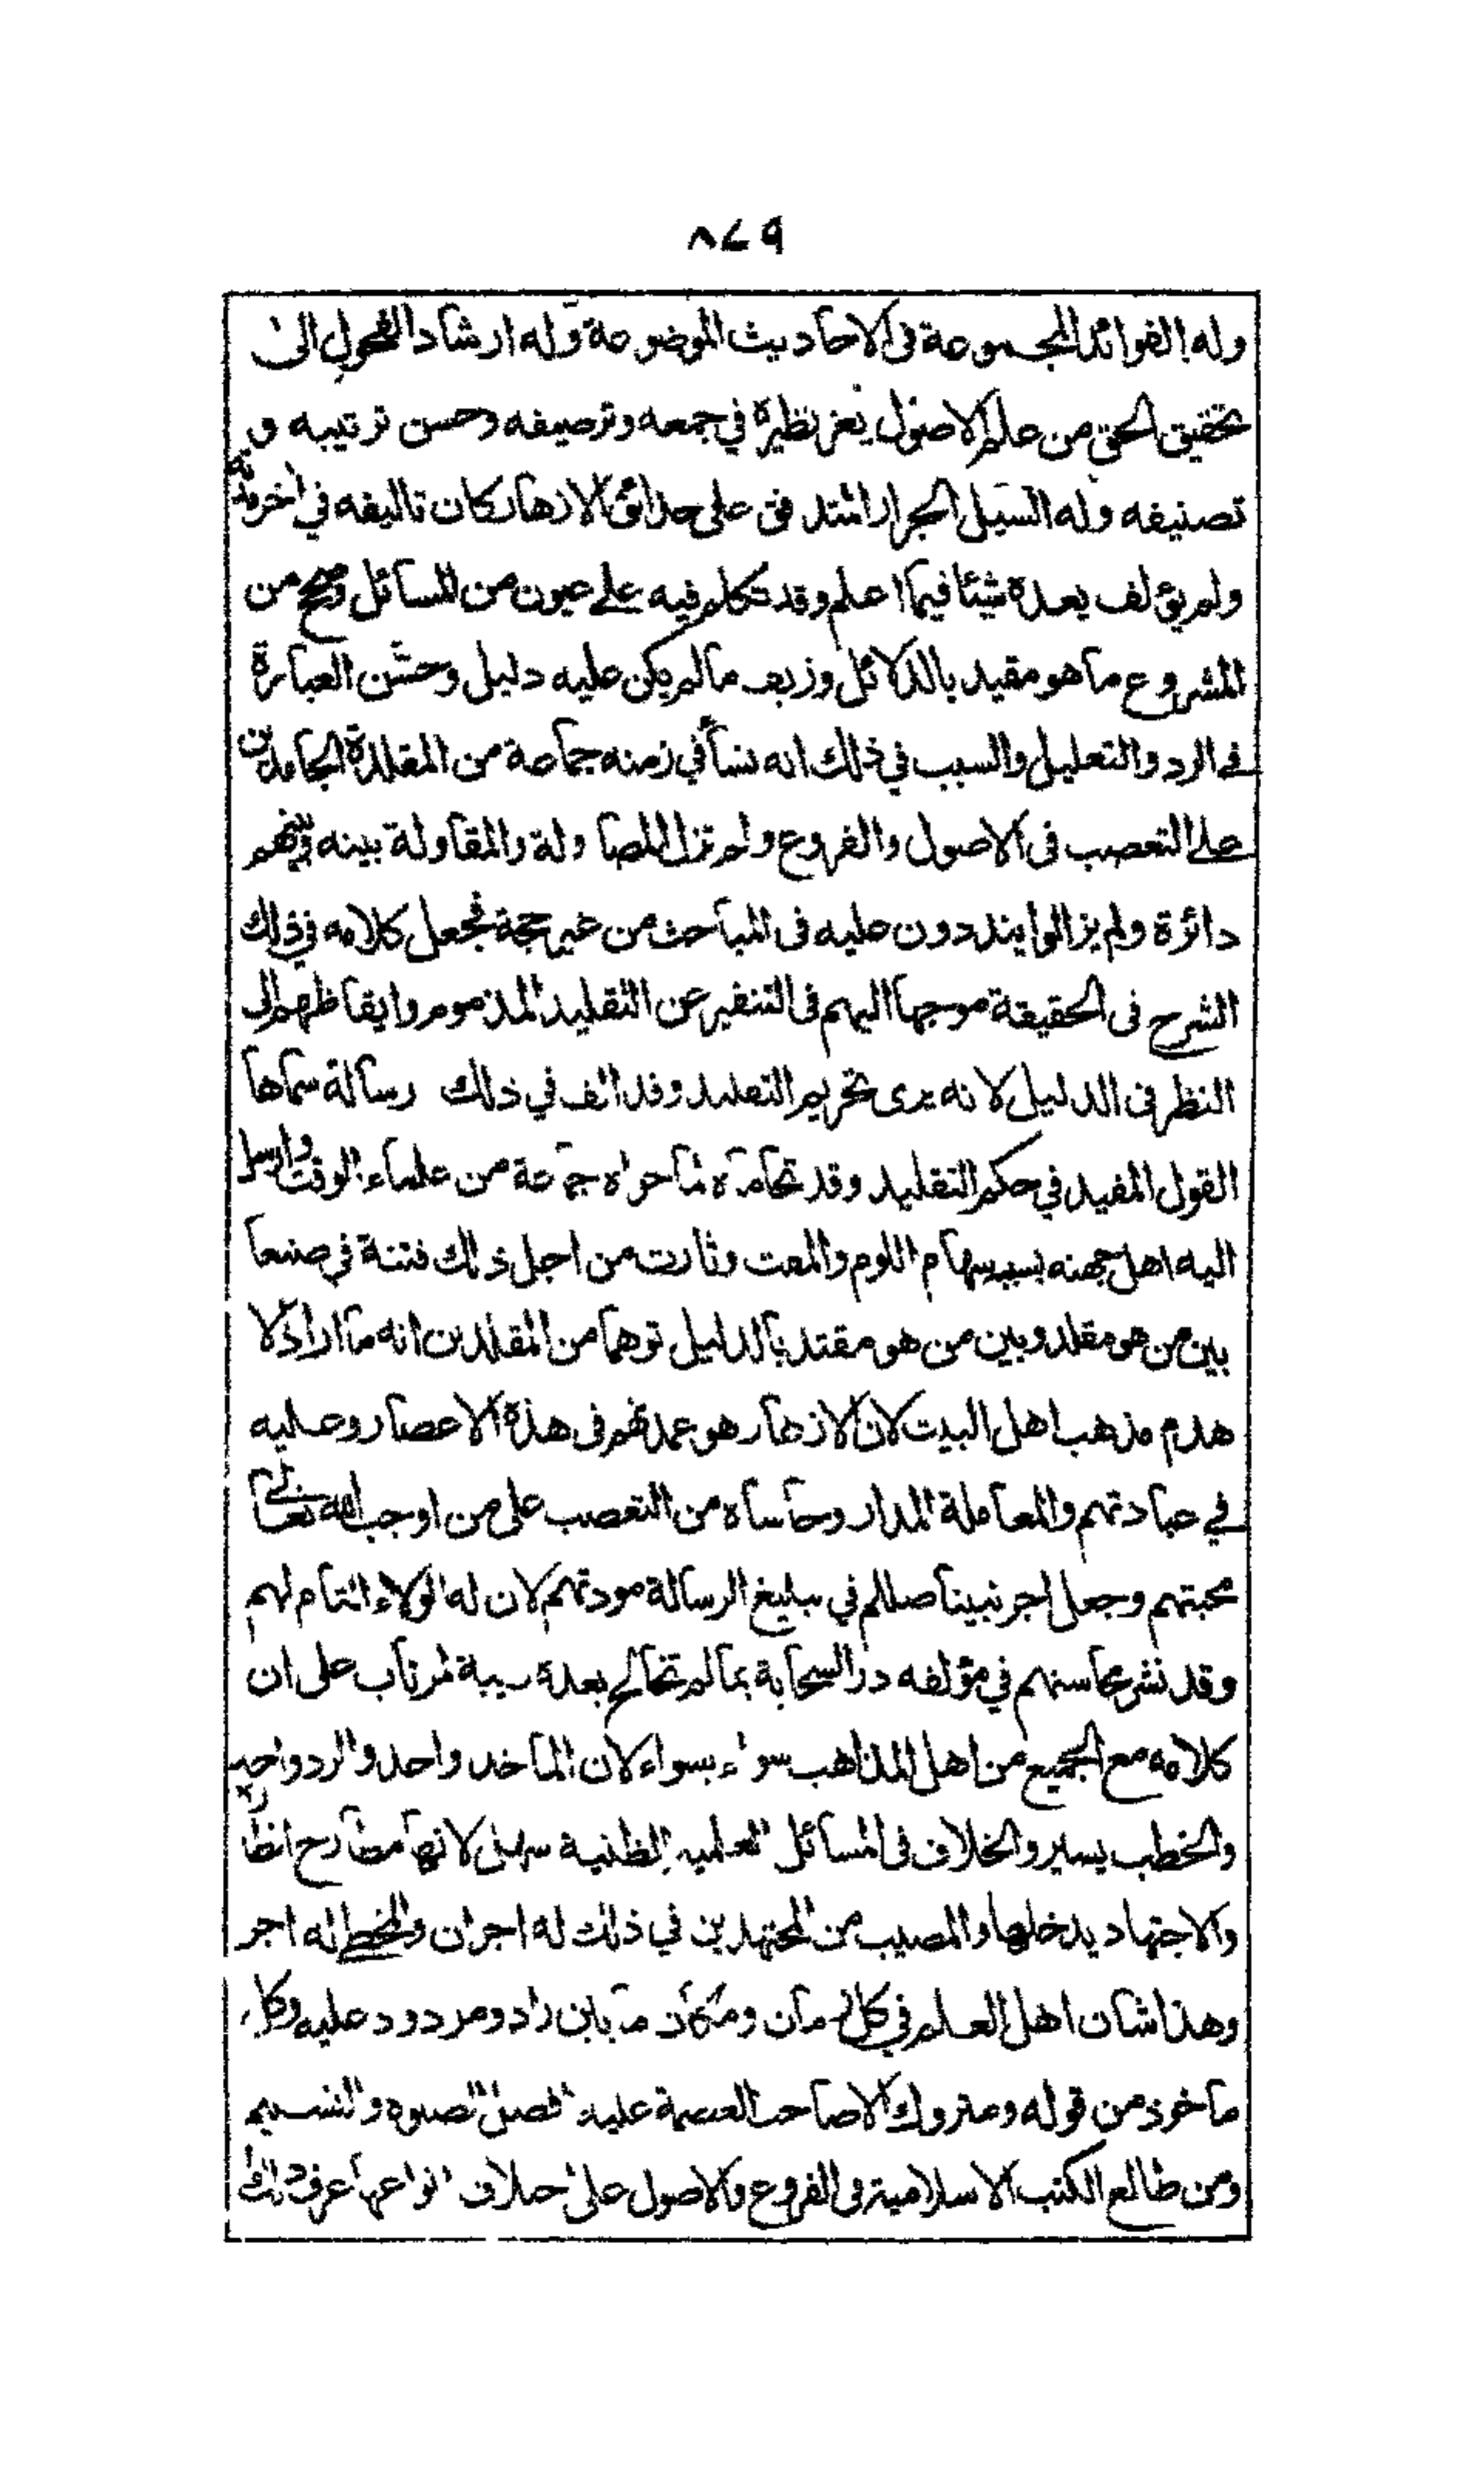 ٨٧٩
وله الفوائد المجموعة فى الاحاديث الموضوعة وله ارشاد الفحول الى
تحقيق الحق من علم الاصول يعز نظيره في جمعه وترصيفه وحسن ترتيبه و
تصنيفه وله السيل الجرار المتدفق على حدائق الازهار كان تاليفه في اخر مدته
ولم يؤلف بعده شيئا فيما اعلم وقد تكلم فيه على عيون من المسائل وصحح من
المشروع ما هو مقيد بالدلائل وزيف مالم يكن عليه دليل وخشن العبارة
فى الرد والتعليل والسبب في ذلك انه نشأ في زمنه جماعة من المقلدة الجامدين
على التعصب فى الاصول والفروع ولم تزل المصاولة والمقاولة بينه وبينهم
دائرة ولم يزالوا ينددون عليه فى المباحث من غير حجة فجعل كلامه في ذلك
الشرح فى الحقيقة موجها اليهم فى التنفير عن التقليد المذموم وايقاظهم الى
النظر فى الدليل لانه يرى تحريم التقليد وقد الف في ذلك رسالة سماها
القول المفيد في حكم التقليد وقد تحاماه لما حواه جماعة من علماء الوقت وارسل
اليه اهل جهته بسببه سهام اللوم والمقت وثارت من اجل ذلك فتنة في صنعا
بين من هو مقلد وبين من هو مقتد بالدليل توهما من المقلدين انه ما اراد الا
هدم مذهب اهل البيت لان الازهار هو عمدتهم فى هذه الاعصار وعليه
في عبادتهم والمعاملة المدار وحاشاه من التعصب على من اوجب الله تعالى
محبتهم وجعل اجر نبينا صللم في تبليغ الرسالة مودتهم لان له الولاء التام لهم
وقد نشر محاسنهم في مؤلفه در السحابة بما لم تخالج بعده ريبة لمرتاب على ان
كلامه مع الجميع من اهل المذاهب سواء بسواء لان المأخذ واحد والرد واحد
والخطب يسير والخلاف فى المسائل العلمية الظنية سهل لانها مطارح انظار
والاجتهاد يدخلها والمصيب من المجتهدين في ذلك له اجران والمخطئ له اجر
وهذا شان اهل العلم في كل زمان ومكان ما بين راد ومردود عليه وكل
مأخوذ من قوله ومتروك الا صاحب العصمة عليه افضل الصلوة والتسليم
ومن طالع الكتب الاسلامية فى الفروع والاصول على اختلاف انواعها عرف ذلك